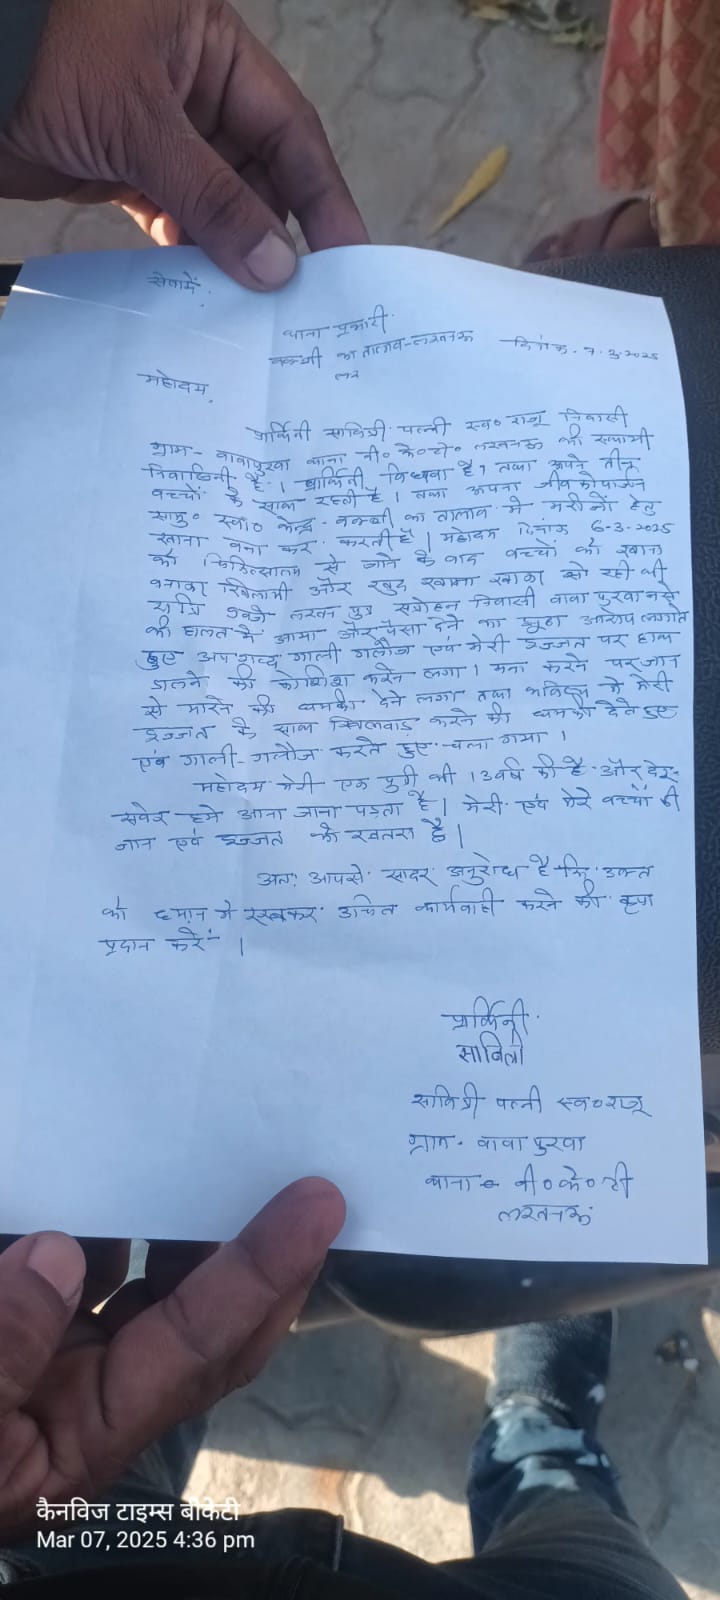 सेवामें,
थाना प्रभारी
बक्शी का तालाब-लखनऊ दिनांक. 7.3.2025
महोदय,
प्रार्थिनी सावित्री पत्नी स्व० राजू निवासी
ग्राम- बाबापुरवा थाना बी० के० टी० लखनऊ की स्थायी
निवासिनी है। प्रार्थिनी विधवा है। तथा अपने तीन
बच्चों के साथ रहती है। तथा अपना जीवकोपार्जन
सामु० स्वा० केन्द्र- बक्शी का तालाब मे मरीजों हेतु
खाना बना कर करती है। महोदय दिनांक 6-3-2025
को चिकित्सालय से जाने के बाद बच्चों को खाना
बनाकर खिलायी और खुद खाना खाकर सो रही थी
रात्रि लखन पुत्र निवासी बाबा पुरवा नसे
की हालत मे आया और पैसा देने का झूठा आरोप लगाते
हुए अपशब्द गाली गलौज एवं मेरी इज्जत पर हाथ
डालने की कोशिश करने लगा। मना करने पर जान
से मारने की धमकी देने लगा तथा भविष्य मे मेरी
इज्जत के साथ खिलवाड़ करने की धमकी देते हुए
एवं गाली-गलौज करते हुए चला गया।
महोदय मेरी एक पुत्री भी 13 वर्ष की है और देर-
सवेर हमे आना जाना पड़ता है। मेरी एवं मेरे बच्चों की
जान एवं इज्जत को खतरा है।
अतः आपसे सादर अनुरोध है कि उक्त
को ध्यान मे रखकर उचित कार्यवाही करने की कृपा
प्रदान करें।
प्रार्थिनी
सावित्री
सावित्री पत्नी स्व० राजू
ग्राम- बाबा पुरवा
थाना- बी० के० टी
लखनऊ
कैनविज टाइम्स बीकेटी
Mar 07, 2025 4:36 pm